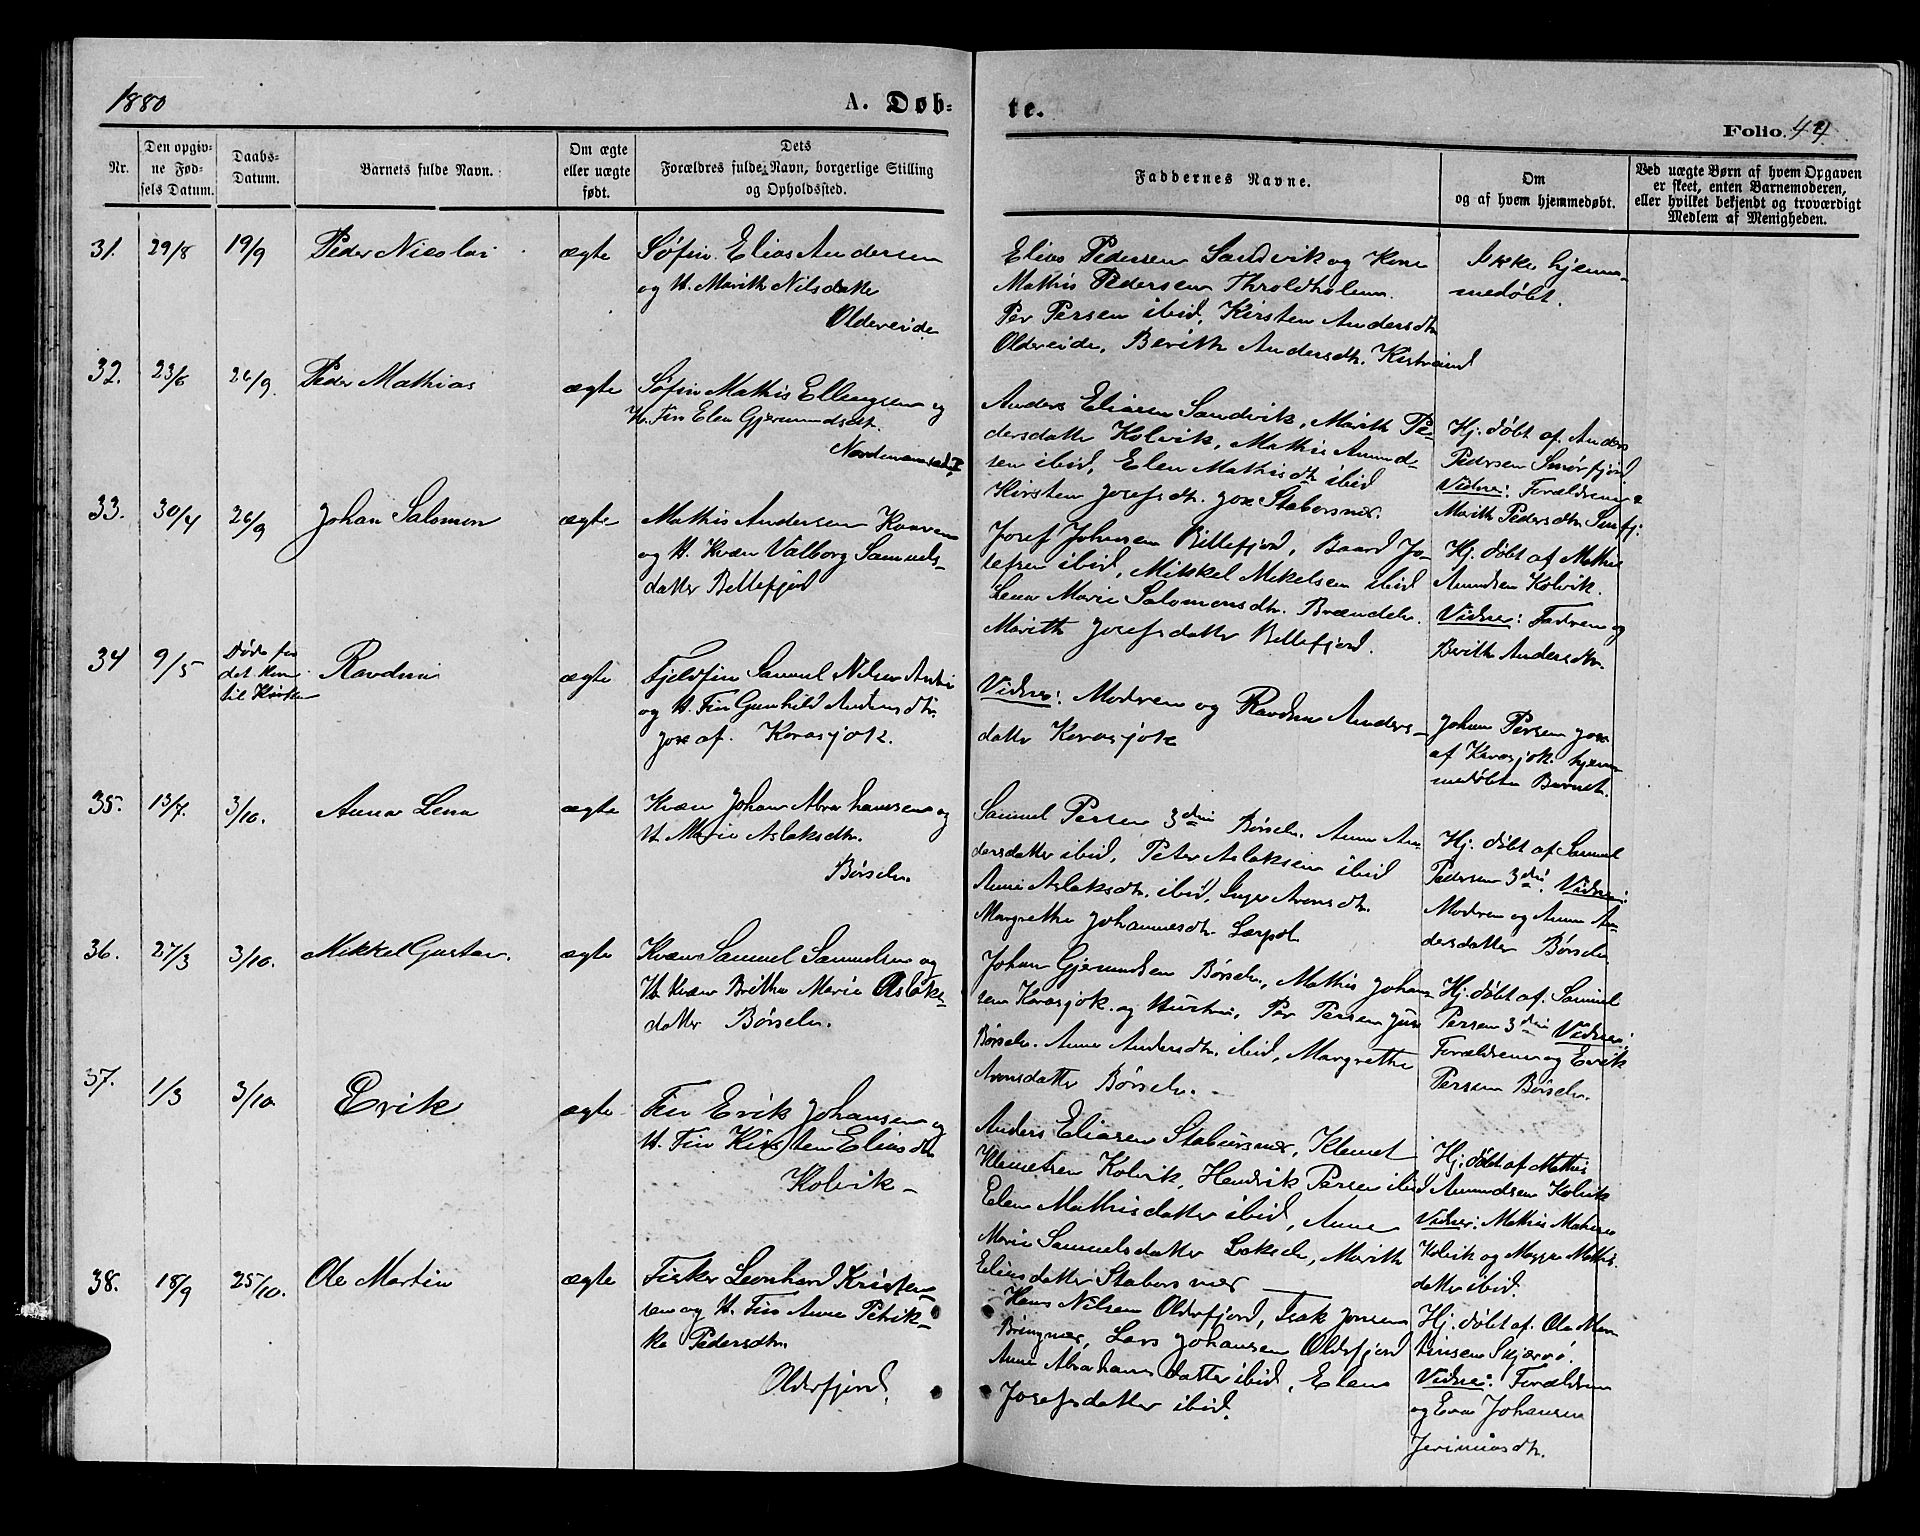 1880
A. Døb-
te.
Folio. 44.
Nr.
Den opgiv-
ne Fød-
sels Datum.
Daabs-
Datum.
Barnets fulde Navn.
Om ægte
eller uægte
født.
Dets
Forældres fulde Navn, borgerlige Stilling
og Opholdssted.
Faddernes Navne.
Om
og af hvem hjemmedøbt.
Ved uægte Børn af hvem Opgaven
er skeet, enten Barnemoderen,
eller hvilket bekjendt og troværdigt
Medlem af Menigheden.
31. 29/8 19/9 Peder Nicolai ægte
Søfin Elias Andersen
og H. Marith Nilsdatter
Oldereide
Elias Pedersen Sandvik og Kone
Mathis Pedersen Throldholmen.
Per Persen ibid, Kirsten Andersdtr
Oldereide, Berith Andersdtr. Kistrand
Ikke hjem-
medøbt.
32. 23/6 26/9. Peder Mathias ægte
Søfin Mathis Ellingsen og
H. Fin Elen Gjermundsdt.
Anders Eliasen Sandvik, Marith Pe-
dersdatter Kolvik, Mathis Amund-
sen ibid, Elen Mathisdtr ibid
Kirsten Josefsdtr. Stabursnæs.
Hj. døbt af Anders
Pedersen Smørfjord
Vidner: Forældrene &
Marith Pedersdtr Smfj:
33. 30/4 26/9 Johan Salomon ægte
Mathis Andersen
og H. Kvæn Valborg Samuels-
datter Billefjord
Josef Johnsen Billefjord, Baard Jo-
sefsen ibid, Mikkel Mikelsen ibid
Lena Marie Salomonsdtr. Brændelv.
Marith Josefsdatter Billefjord.
Hj. døbt af Mathis
Amundsen Kolvik.
Vidner: Fadren og
Berith Andersdtr.
34 9/5
Døde før
det kom
til Kirken
Ravdna ægte
Fjeldfin Samuel Nilsen
og H. Fin Gunhild Andersdtr.
af Karasjok.
Vidner: Modren og Ravdna Anders-
datter Karasjok
Johan Persen
af Karasjok hjem-
medøbte Barnet.
35. 13/7. 3/10. Anna Lena ægte
Kvæn Johan Abrahamsen og
H. Marie Aslaksdtr.
Børselv.
Samuel Persen 3die Børselv. Anna An-
dersdatter ibid, Peter Aslaksen ibid
Anne Aslaksdtr. ibid, Inger Aronsdtr.
Margrethe Johannesdtr. Laxpol.
Hj. døbt af Samuel
Pedersen 3die. Vidner:
Modren og Anna An-
dersdatter Børselv
36. 27/3 3/10. Mikkel Gustav. ægte
Kvæn Samuel Samuelsen og
H. Kvæn Britha Maria Aslaks-
datter Børselv.
Johan Gjermundsen Børselv, Mathis Johan-
sen Karasjok og Hustru, Per Persen
Børselv. Anna Andersdtr. ibid, Margrethe
Aronsdatter Børselv.
Hj. døbt af Samuel
Persen 3die Vidner:
Forældrene og Erik
Persen Børselv.
37. 1/3 3/10. Erik ægte
Fin Erik Johansen og
H. Fin Kirsten Eliasdtr
Kolvik
Anders Eliasen Stabursnæs, Klemet
Klemetsen Kolvik, Henrik Persen ibid
Elen Mathisdatter ibid, Anne
Marie Samuelsdatter Lakselv, Marith
Eliasdatter Stabursnæs
Hj. døbt af Mathis
Amundsen Kolvik
Vidner: Mathis Mathisen
Kolvik og Magga Mathis-
datter ibid.
38. 18/9 25/10. Ole Martin ægte
Fisker Leonhard Kristen-
sen og H. Fin Anne Petrik-
ke Pedersdtr.
Olderfjord.
Hans Nilsen Olderfjord, Isak Jonsen
Bringnæs, Lars Johansen Olderfjord
Anne Abrahamsdatter ibid, Elen
Josefsdatter ibid.
Hj. døbt af Ole Mar-
tinsen Skjærvø.
Vidner: Forældrene
og Eva Johansen
Jerimiasdtr.